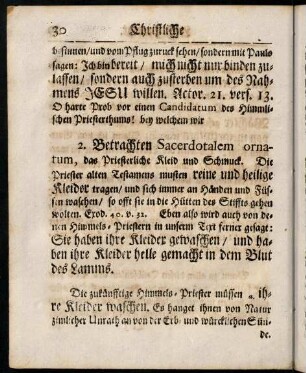 30 Christliche
besinnen/und vom Pflug zuruck sehen/sondern mit Paulo
sagen: Ich bin bereit/ mich nicht nur binden zu
lassen/ sondern auch zusterben um des Nah-
mens JESU willen. Actor. 21. vers. 13.
O harte Prob vor einen Candidatum des Himmli-
schen Priesterthums! bey welchem wir
2. Betrachten Sacerdotalem orna-
tum, das Priesterliche Kleid und Schmuck. Die
Priester alten Testamens musten reine und heilige
Kleider tragen/ und sich immer an Händen und Füs-
sen waschen/ so offt sie in die Hütten des Stiffts gehen
wolten. Exod. 40. v. 32. Eben also wird auch von de-
nen Himmels-Priestern in unserm Text ferner gesagt:
Sie haben ihre Kleider gewaschen/ und ha-
ben ihre Kleider helle gemacht in dem Blut
des Lamms.
Die zukünfftige Himmels-Priester müssen a. ih-
re Kleider waschen. Es hanget ihnen von Natur
zimlicher Unrath an von der Erb- und würcklichen Sün-
de.